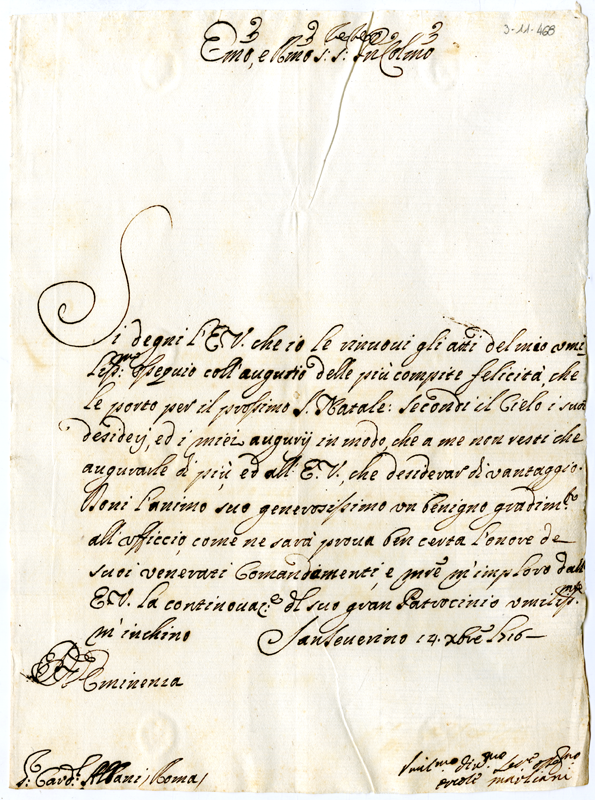 3-11-468
Emo, e Rmo S: S: Pn Colmo
Si degni l'E.V. che io le rinuovi gli atti del mio vmi
liss:mo ossequio coll'augurio delle più compite felicità, che
le porto per il prosimo S. Natale: Secondi il Cielo i suoi
desiderj, ed i miei augurij in modo, che a me non resti che
augurarle di più, ed all'E.V., che desiderar di vantaggio.
Doni l'animo suo generosissimo vn benigno gradim.to
all'vfficio, come ne sarà proua ben certa l'onore de
suoi venerati Comandamenti, e mre m'imploro dall'
E.V. la continouaz.e del suo gran Patrocinio vmiliss.mte
m'inchino Sanseuerino 14. xbre 1716
D. V. Eminenza
S: Card.l Albani, Roma,
Vmil.mo diu.mo
Marliani